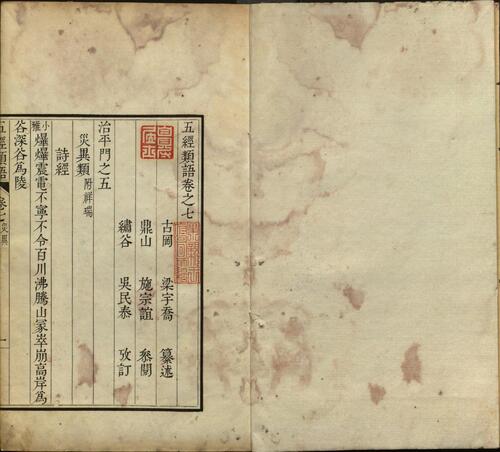 五經類語卷之七
古岡 梁宇喬 纂述
鼎山 施宗誼 叅閱
繡谷 吳民泰 攷訂
治平門之五
災異類 附祥瑞
詩經
小雅 爗爗震電不寧不令百川沸騰山冡崒崩高岸爲
谷深谷爲陵
五經類語 卷七 災異 一